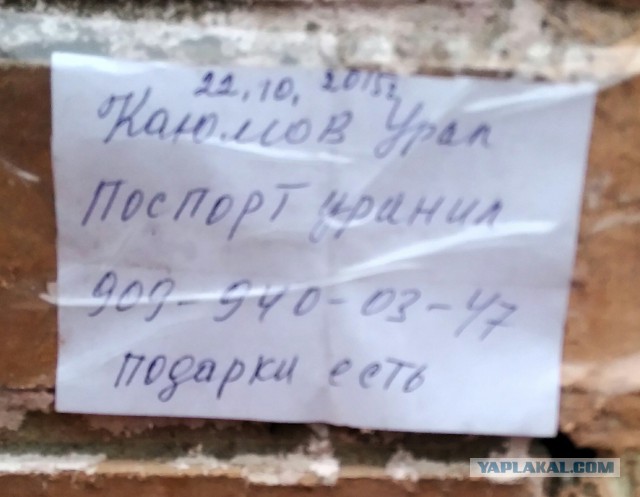 22.10.2015г
Каюмов Урал
Поспорт уранил
909-940-03-47
подарки есть
YAPLAKAL.COM